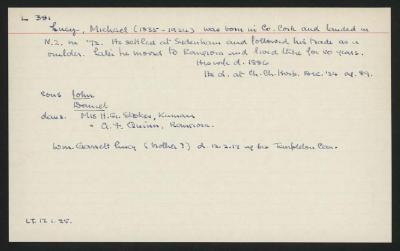 L 381
Lucy, Michael (1835-1924) was born in Co. Cork and landed in
N.Z. in '72. He settled at Sydenham and followed his trade as a
builder. Later he moved to Rangiora and lived there for 40 years.
His wife d. 1886
He d. at Ch.Ch. Hosp. Dec. '24 ag. 89.
sons John
Daniel
daus. Mrs H.G. Stokes, Kumara
" A. F. Quinn, Rangiora.
Wm. Garrett Lucy (brother?) d. 12.2.12 ag 60 Templeton Cem.
LT. 12.1.25.